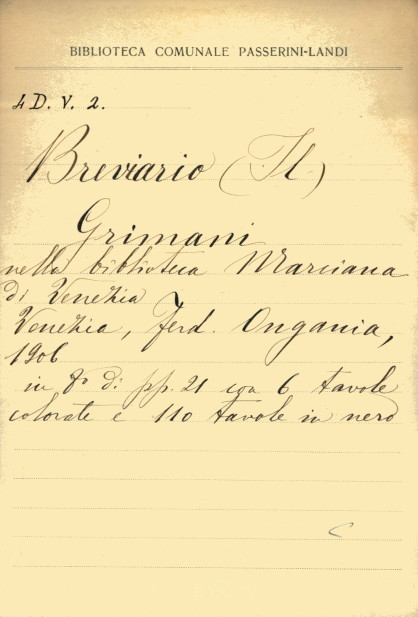 BIBLIOTECA COMUNALE PASSERINI-LANDI
4 D. V. 2.
Breviario (Il)
Grimani
nella biblioteca Marciana
di Venezia
Venezia, Ferd. Ongania,
1906
in 8º di pp. 21 con 6 tavole
colorate e 110 tavole in nero